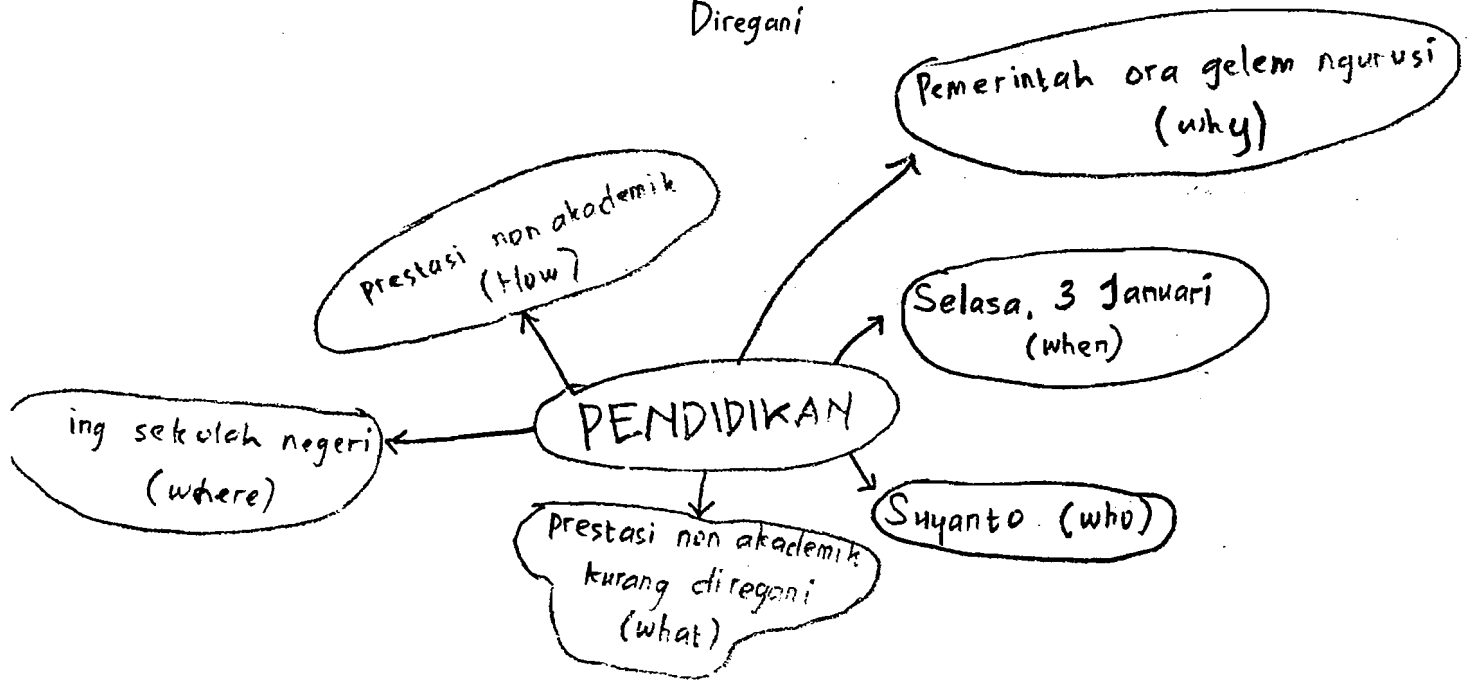 Diregani
Pemerintah ora gelem ngurusi
(why)
prestasi non akademik
(How)
Selasa, 3 Januari
(when)
PENDIDIKAN
ing sekolah negeri
(where)
Suyanto (who)
prestasi non akademik
kurang diregani
(what)